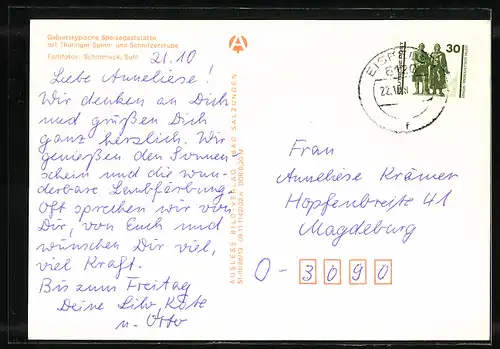 Gebietstypische Speisegaststätte
mit Thüringer Spinn- und Schnitzerstube
Farbfotos: Schimmack, Suhl
21.10
Liebe Anneliese!
Wir denken an Dich
und grüßen Dich
ganz herzlich. Wir
genießen den Sonnen
schein und die wun-
derbare Laubfärbung.
Oft sprechen wir von
Dir, von Euch und
wünschen Dir viel,
viel Kraft.
Bis zum Freitag
Deine Lilo, Käte
u. Otto
AUSLESE BILD-VERLAG BAD SALZUNGEN
30
22.10.
Frau
Anneliese Krämer
Hopfenbreite 41
Magdeburg
O-3090